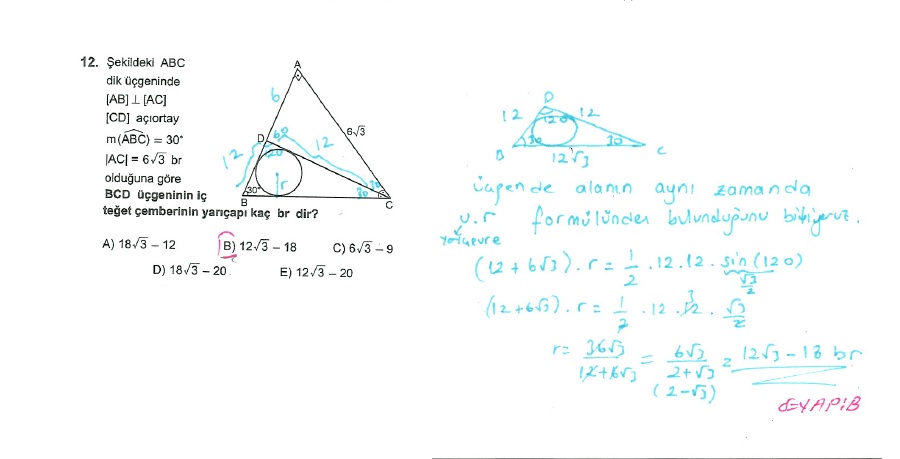 12. Şekildeki ABC
dik üçgeninde
[AB] ⊥ [AC]
[CD] açıortay
m(ABC) = 30°
|AC| = 6√3 br
olduğuna göre
BCD üçgeninin iç
teğet çemberinin yarıçapı kaç br dir?
A
6
6√3
D
60
120
12
12
r
30°
30
30
B
C
A) 18√3 – 12 B) 12√3 – 18 C) 6√3 – 9
D) 18√3 – 20 E) 12√3 – 20
D
12 120 12
B 30 30 C
12√3
üçgende alanın aynı zamanda
u.r formülünden bulunduğunu biliyoruz.
yarıçevre
(12 + 6√3) . r = 1/2 . 12 . 12 . sin(120)
√3/2
(12 + 6√3) . r = 1/2 . 12 . 12 . √3/2
3
r = 36√3/12+6√3 = 6√3/2+√3 = 12√3 – 18 br
(2–√3)
EYAPIB